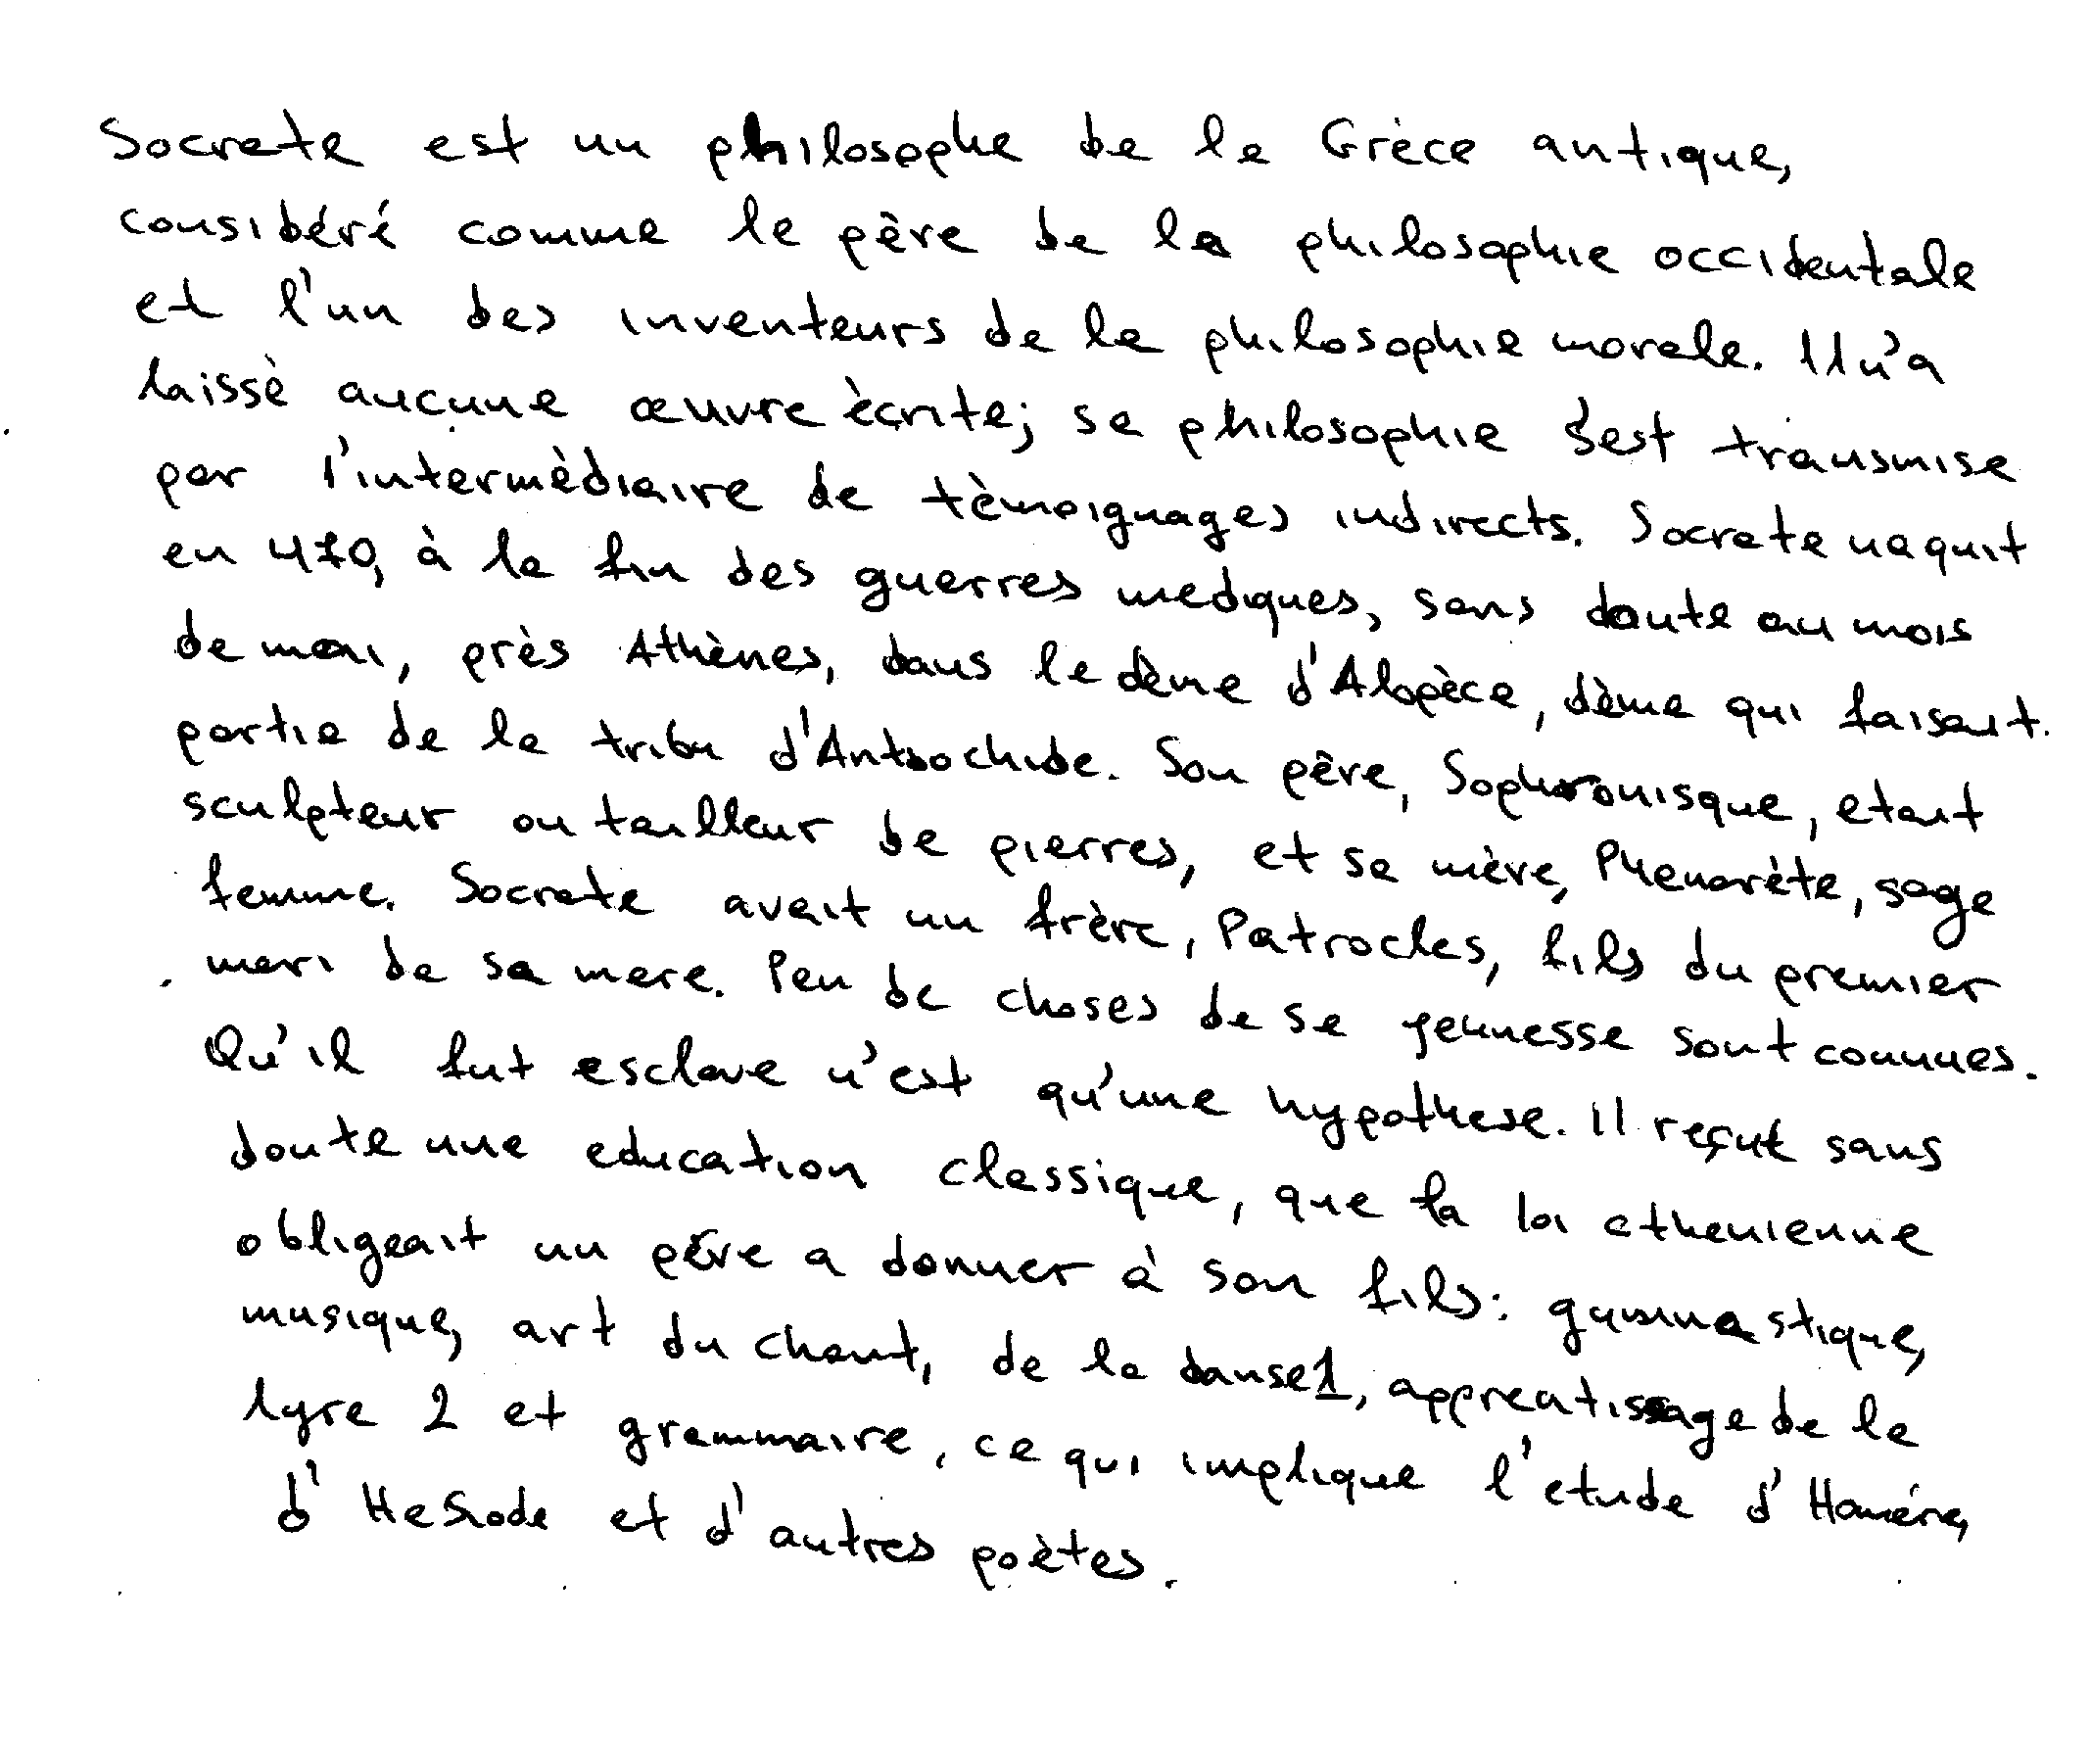 Socrate est un philosophe de la Grèce antique,
considéré comme le père de la philosophie occidentale
et l'un des inventeurs de la philosophie morale. Il n'a
laissè aucune œuvre ècrite; sa philosophie s'est transmise
par l'intermèdiaire de tèmoignages indirects. Socrate naquit
en 470, à la fin des guerres mediques, sans doute au mois
de mai, près Athènes, dans le dème d'Alopèce, dème qui faisait
partie de la tribu d'Antiochide. Son père, Sophronisque, etait
sculpteur ou tailleur de pierres, et sa mère, Phenarète, sage
femme. Socrate avait un frère, Patrocles, fils du premier
mari de sa mere. Peu de choses de sa jeunesse sont connues.
Qu'il fut esclave n'est qu'une hypothese. Il reçut sans
doute une education classique, que la loi athenienne
obligeait un père a donner à son fils: gymnastique,
musique, art du chant, de la danse1, appreatissage de la
lyre 2 et grammaire, ce qui implique l'etude d'Homére,
d'Hesiode et d'autres poètes.